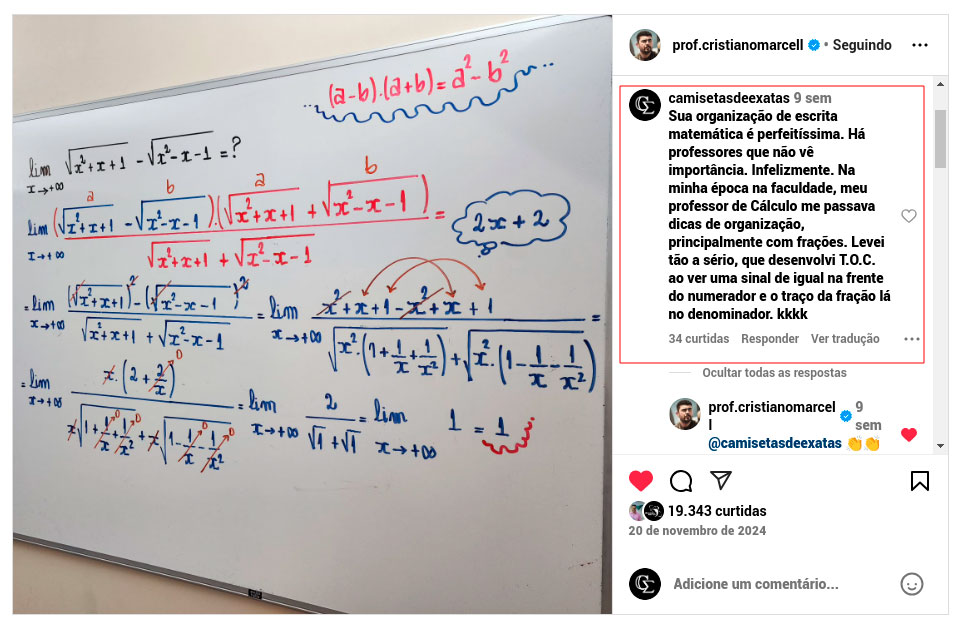 (a-b).(a+b)=a²-b²
lim x→+∞ √x²+x+1 - √x²-x-1 = ?
a b a b
lim x→+∞ (√x²+x+1 - √x²-x-1).(√x²+x+1 + √x²-x-1) / √x²+x+1 + √x²-x-1 =
2x+2
= lim x→+∞ (√x²+x+1)² - (√x²-x-1)² / √x²+x+1 + √x²-x-1 = lim x→+∞ x²+x+1-x²+x+1 / √x².(1+1/x+1/x²) + √x².(1-1/x-1/x²) =
= lim x→+∞ x.(2+2/x) / x√1+1/x+1/x² + x√1-1/x-1/x² = lim x→+∞ 2 / √1+√1 = lim x→+∞ 1 = 1
0
0 0 0 0
prof.cristianomarcell • Seguindo
camisetasdeexatas 9 sem
Sua organização de escrita
matemática é perfeitíssima. Há
professores que não vê
importância. Infelizmente. Na
minha época na faculdade, meu
professor de Cálculo me passava
dicas de organização,
principalmente com frações. Levei
tão a sério, que desenvolvi T.O.C.
ao ver uma sinal de igual na frente
do numerador e o traço da fração lá
no denominador. kkkk
34 curtidas Responder Ver tradução
Ocultar todas as respostas
prof.cristianomarcel
l 9 sem
@camisetasdeexatas 👏👏
19.343 curtidas
20 de novembro de 2024
Adicione um comentário...